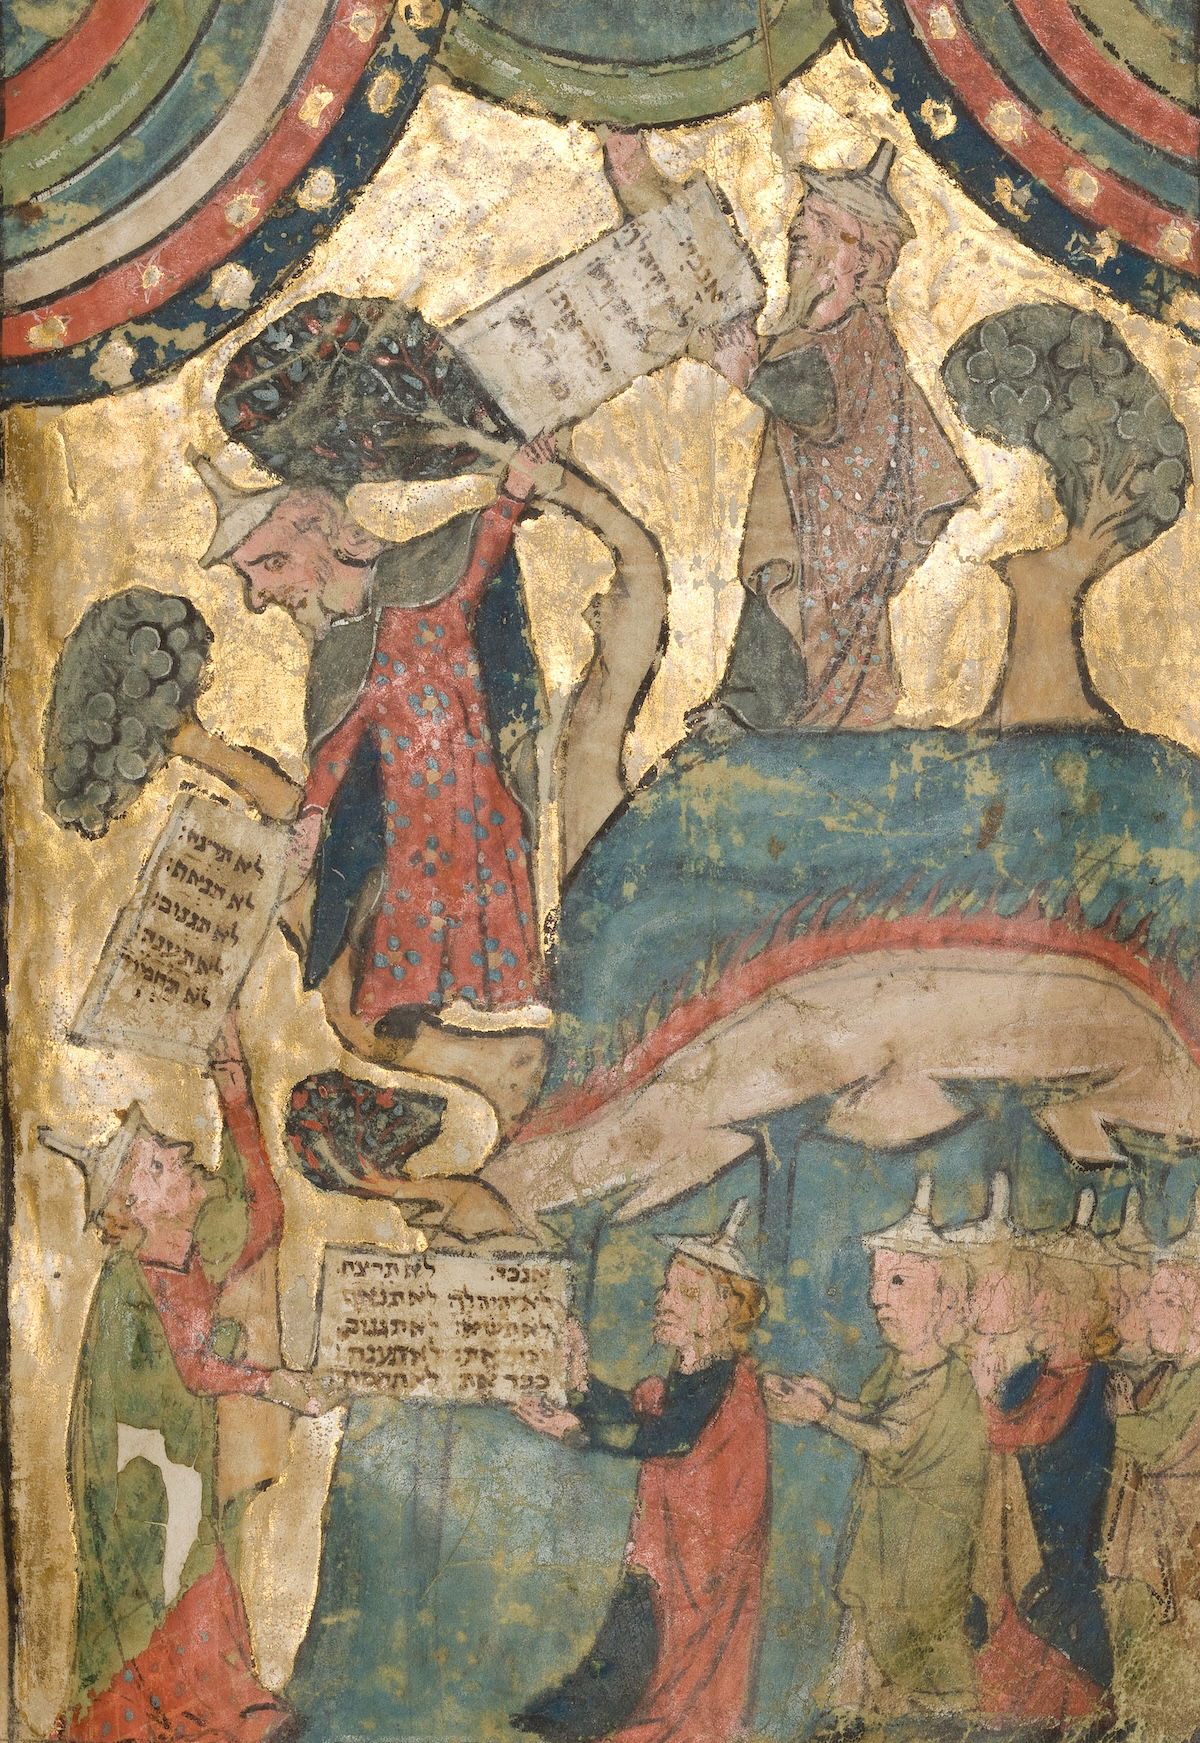 אנכי
לא יהיה לך
לא תרצח:
לא תנאף:
לא תגנוב:
לא תענה:
לא תחמוד
אנכי: לא תרצח:
לא יהיה לך לא תנאף
לא תשא: לא תגנוב:
זכור את: לא תענה:
כבד את לא תחמוד